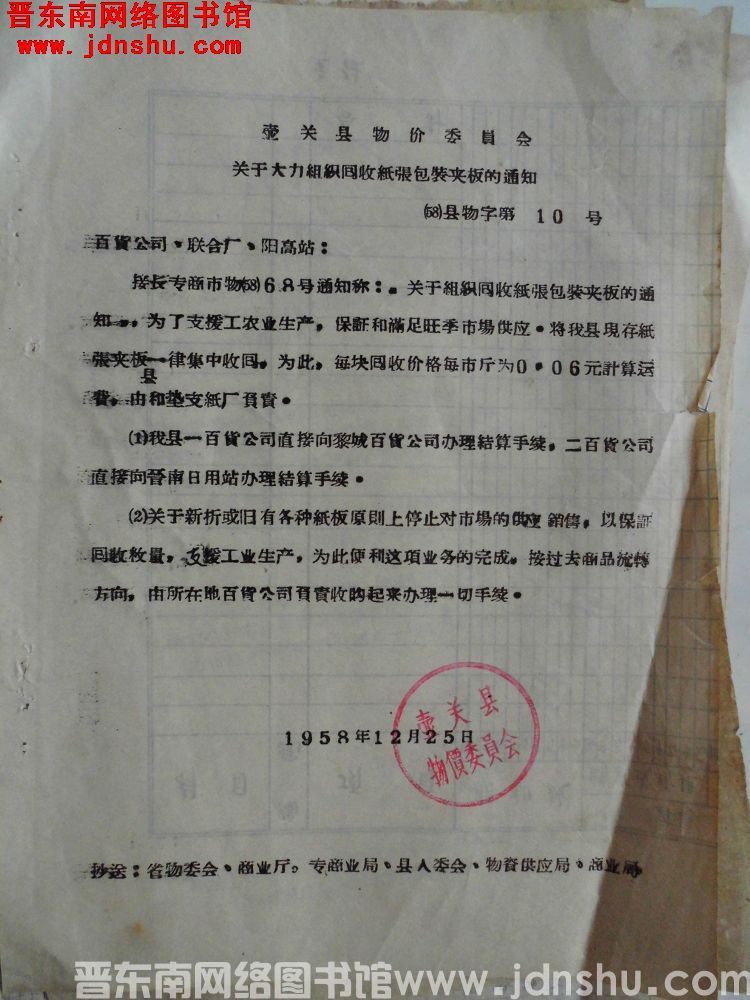 晋东南网络图书馆
www.jdnshu.com
壶关县物价委員会
关于大力組織囘收紙張包裝夹板的通知
(58)县物字第 10 号
百貨公司、联合厂、阳高站：
接長专商市物(58)68号通知称：“关于組織囘收紙張包裝夹板的通
知”，为了支援工农业生产，保証和滿足旺季市場供应。将我县現存紙
張夹板一律集中收囘，为此，每块囘收价格每市斤为0.06元計算运
县
費，由和垫支紙厂負責。
(1)我县一百貨公司直接向黎城百貨公司办理結算手续，二百貨公司
直接向晋南日用站办理結算手续。
(2)关于新折或旧有各种紙板原則上停止对市場的供应銷售，以保証
囘收数量，支援工业生产，为此便利这項业务的完成，按过去商品流轉
方向，由所在地百貨公司負責收购起来办理一切手续。
壶关县
物價委員会
1958年12月25日
抄送：省物委会、商业厅。专商业局、县人委会、物資供应局、商业局
晋东南网络图书馆www.jdnshu.com